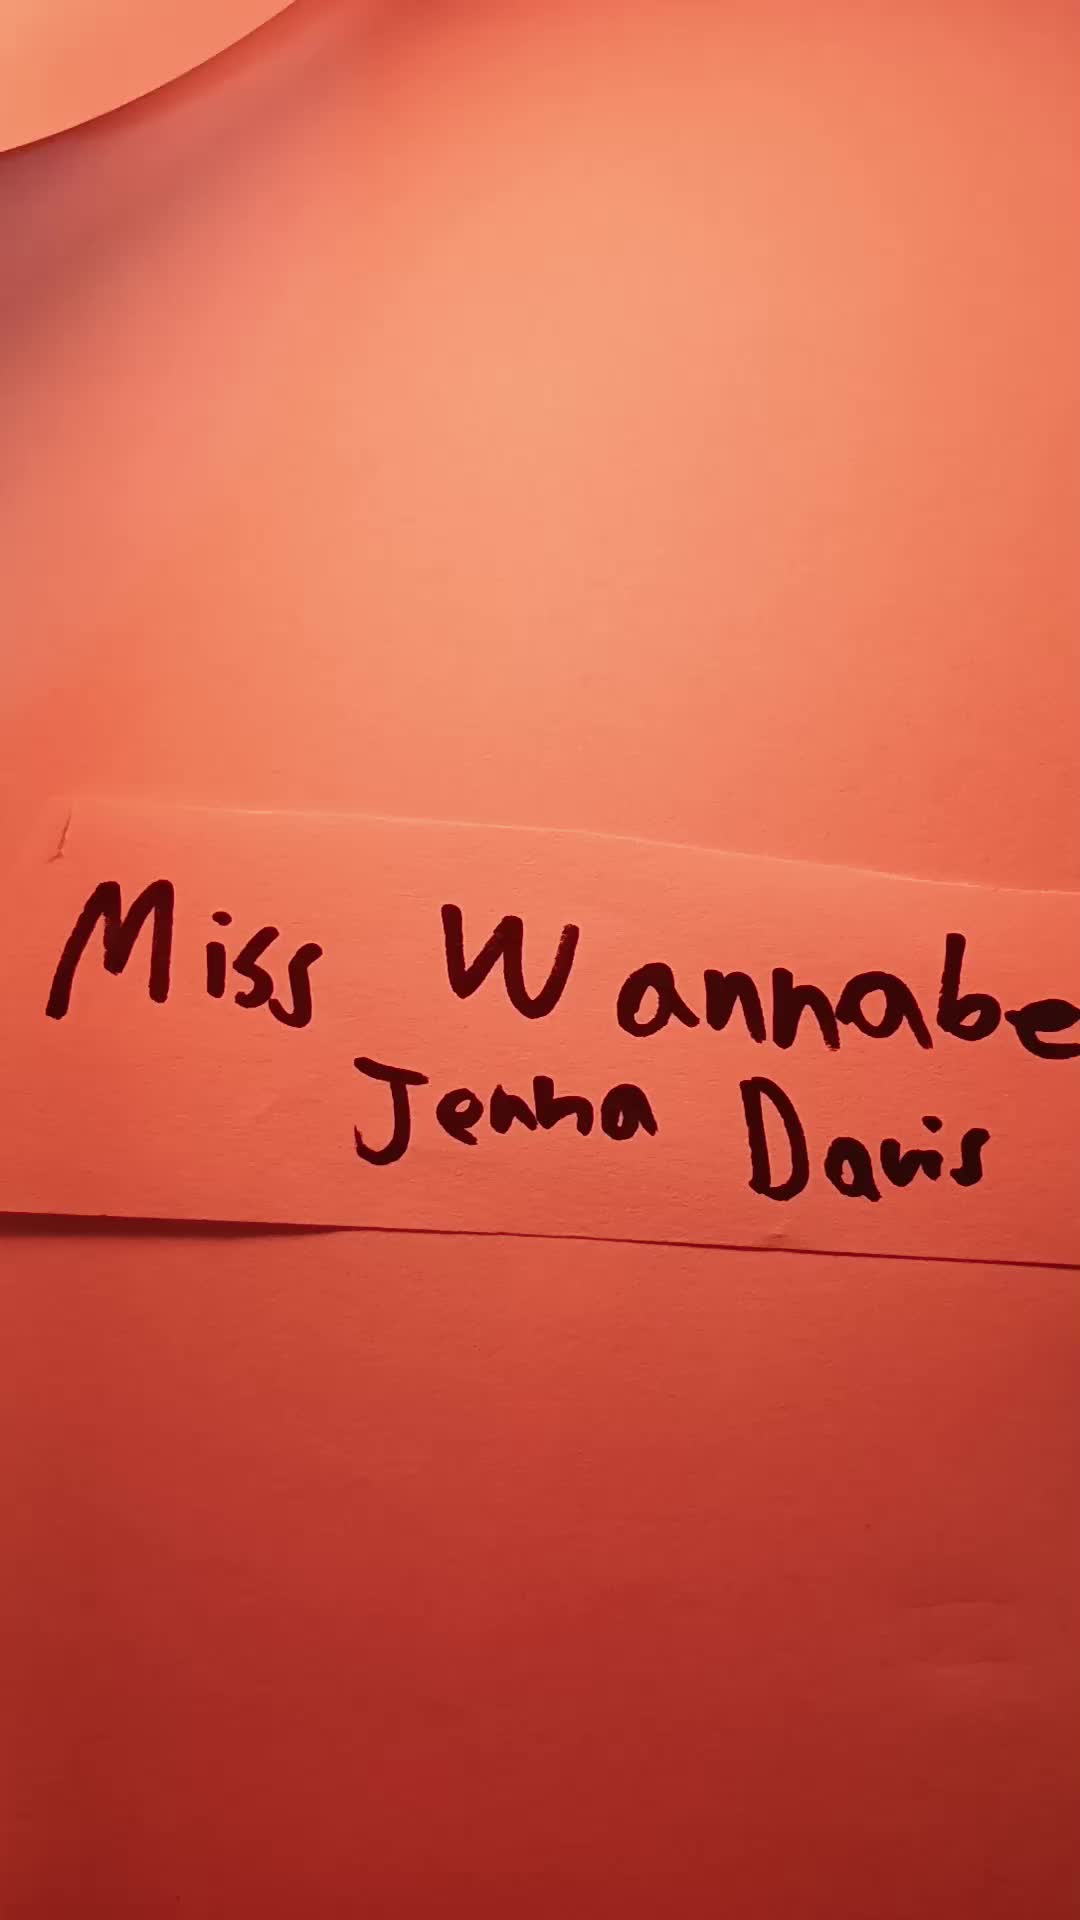 Miss Wannabe
Jenna Davis